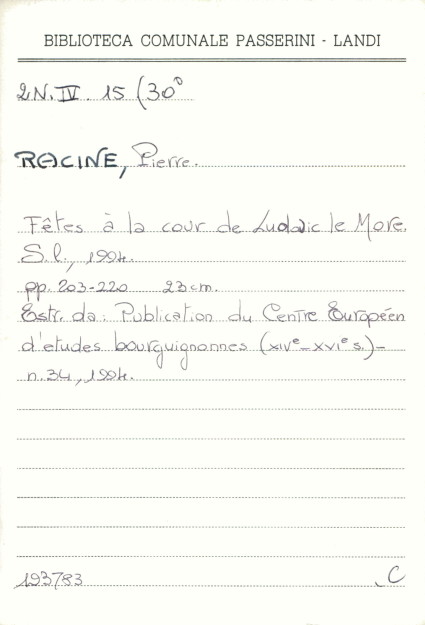 BIBLIOTECA COMUNALE PASSERINI - LANDI
2N.IV. 15 (30°
RACINE, Pierre.
Fêtes à la cour de Ludovic le More.
S.l., 1994.
pp. 203-220 23 cm.
Estr. da: Publication du Centre Européen
d'etudes bourguignonnes (XIVe-XVIe s.)-
n.34, 1994.
193783 C